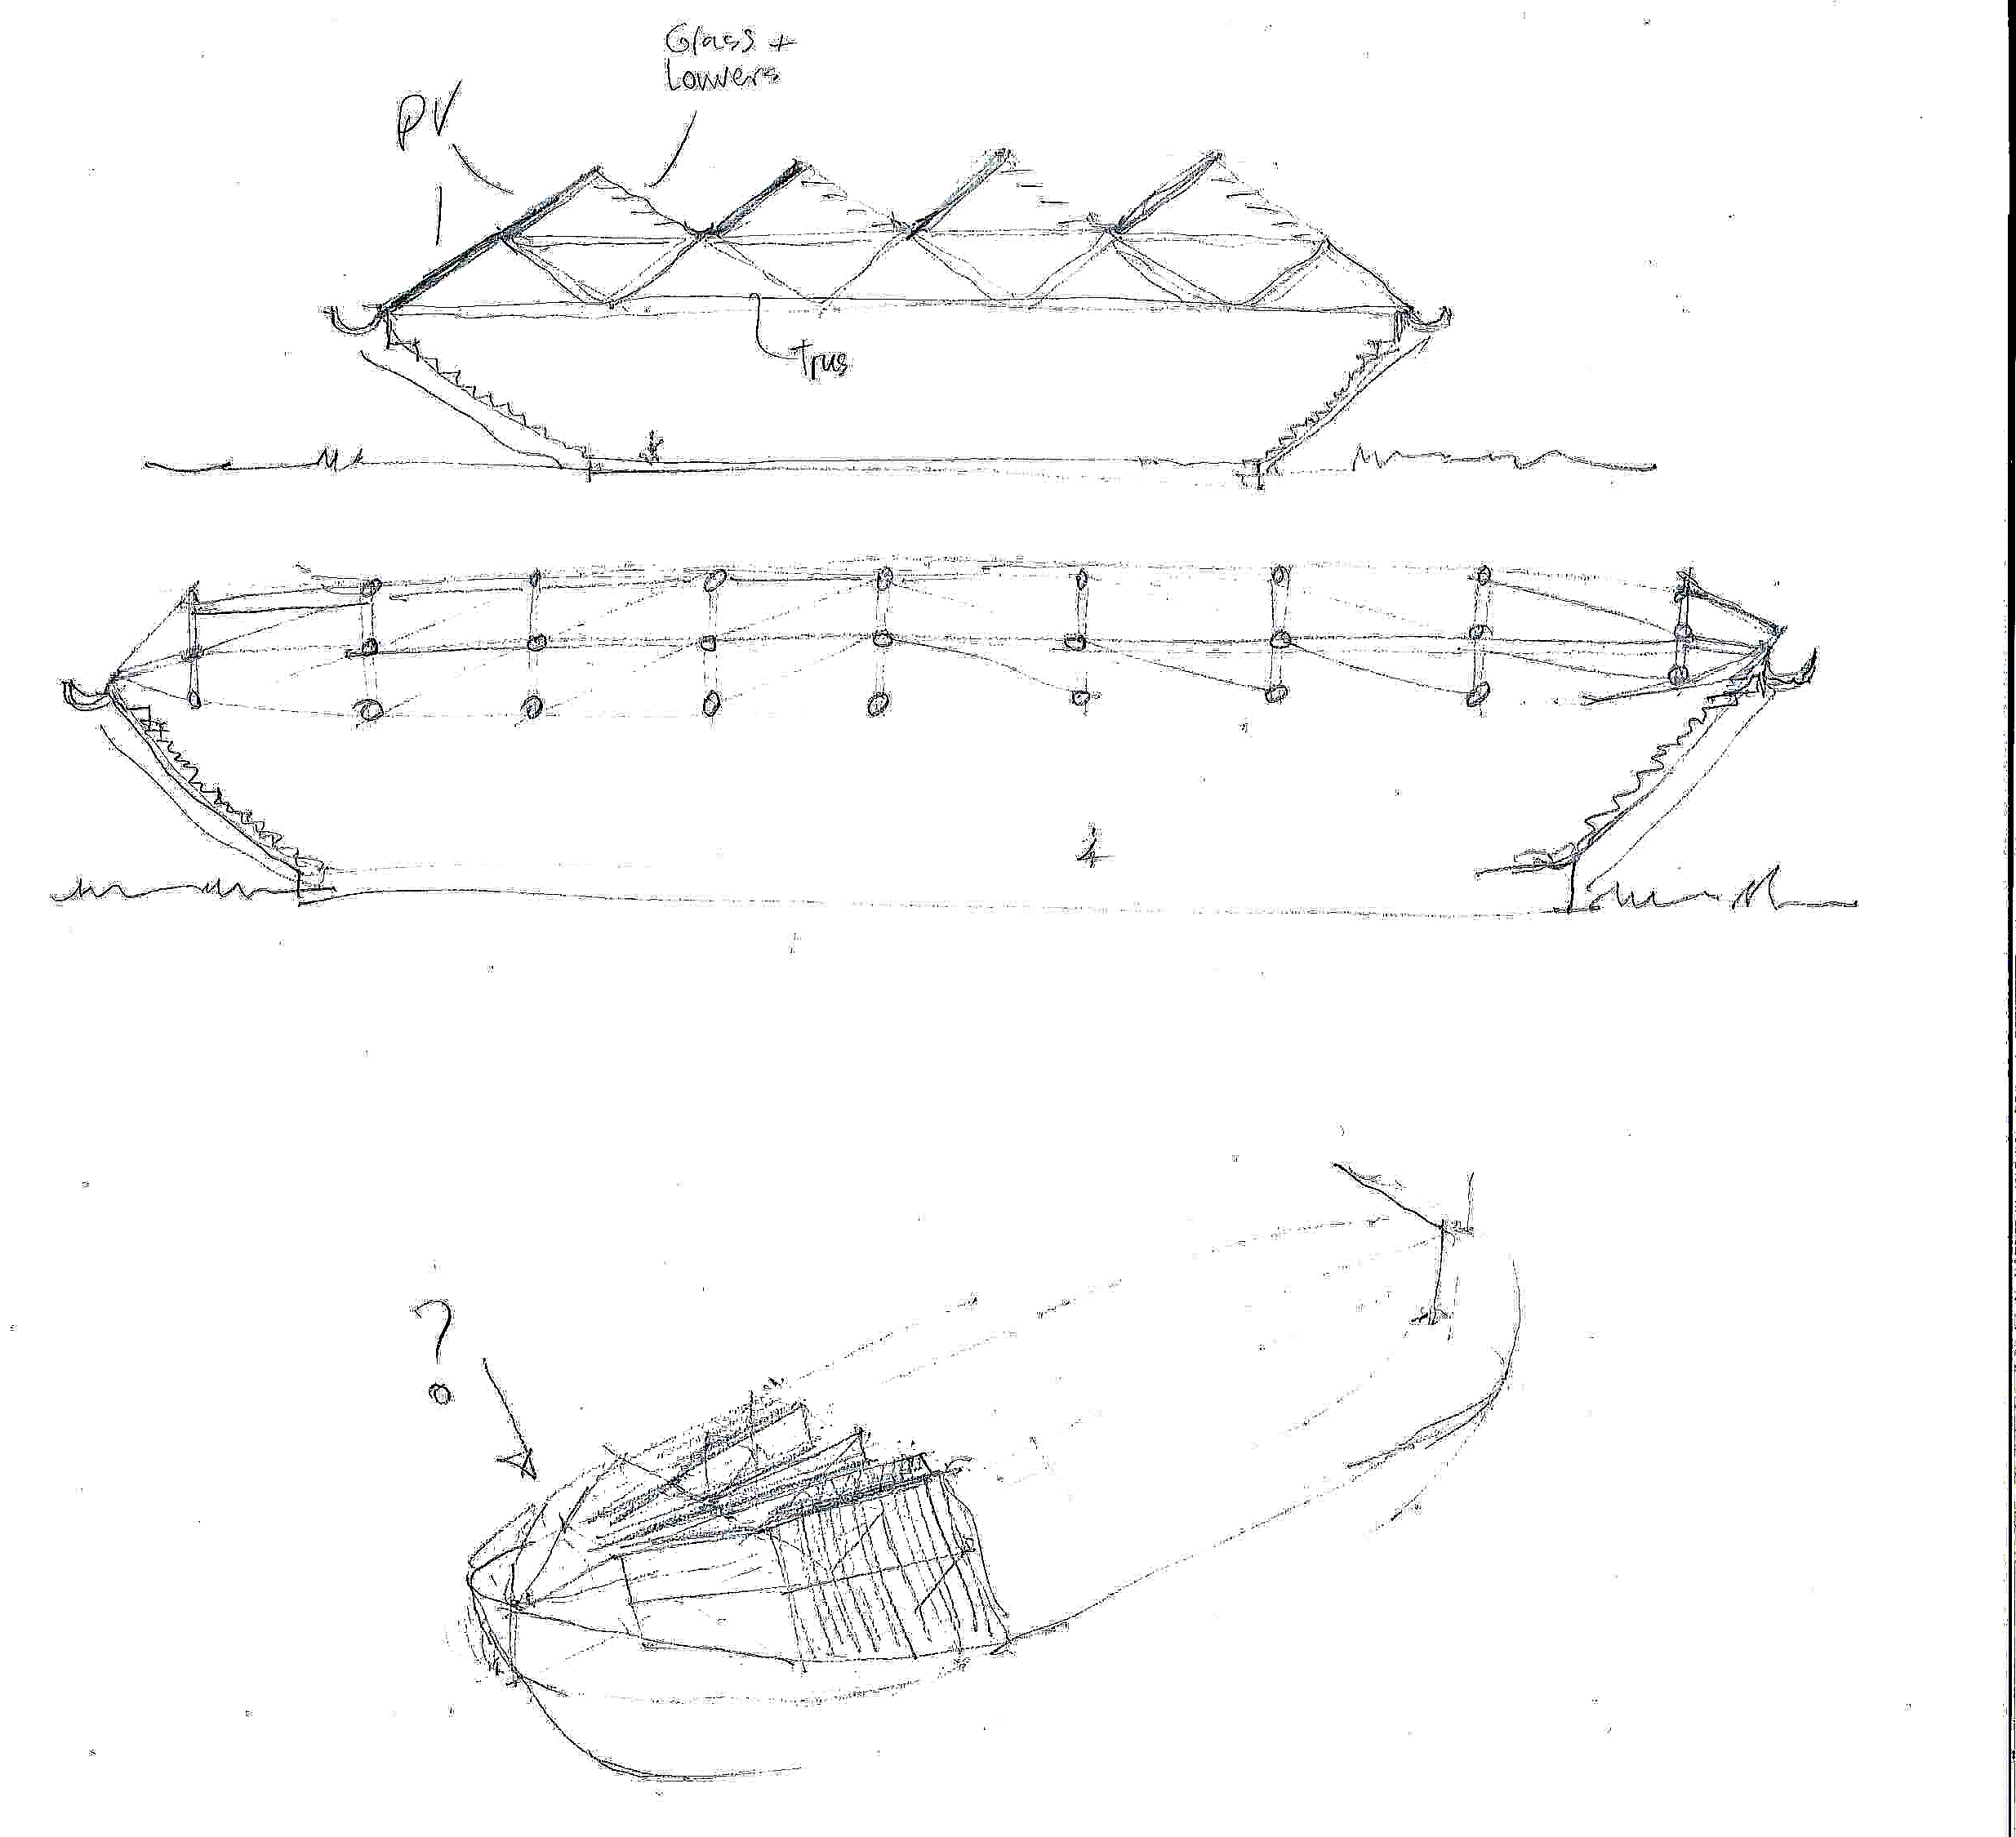 Glass +
Louvers
PV
Trus
?